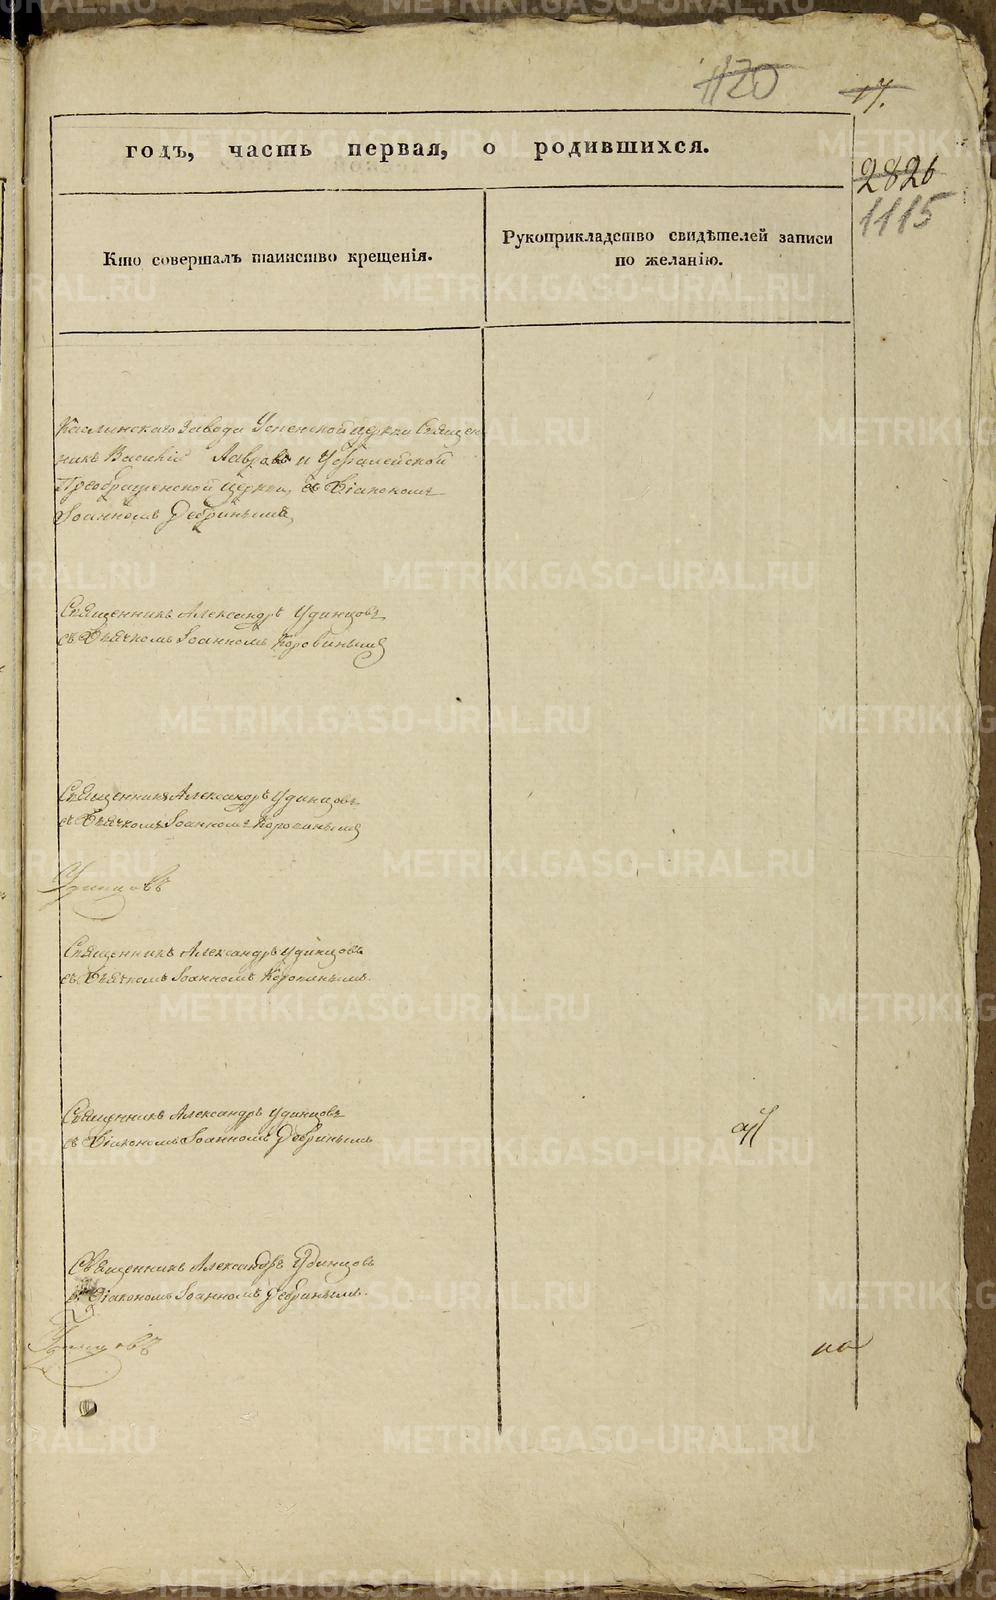 1120
17.
годъ, часть первая, о родившихся.
2826
1115
Кто совершалъ таинство крещенія.
Рукоприкладство свидѣтелей записи
по желанію.
Каслинскаго Завода Успенской церкви Священ
никъ Василій Лавровъ и Уфалейской
Преображенской церкви, съ Діакономъ
Іоанномъ Дебринымъ
Священникъ Александръ Удинцовъ
съ Дьячкомъ Іоанномъ Коровинымъ
Священникъ Александръ Удинцовъ
съ Дьячкомъ Іоанномъ Коровинымъ
Удинцовъ
Священникъ Александръ Удинцовъ
съ Дьячкомъ Іоанномъ Коровинымъ.
Священникъ Александръ Удинцовъ
съ Діакономъ Іоанномъ Дебринымъ
Священникъ Александръ Удинцовъ
съ Діакономъ Іоанномъ Дебринымъ.
Удинцовъ
METRIKI.GASO-URAL.RU